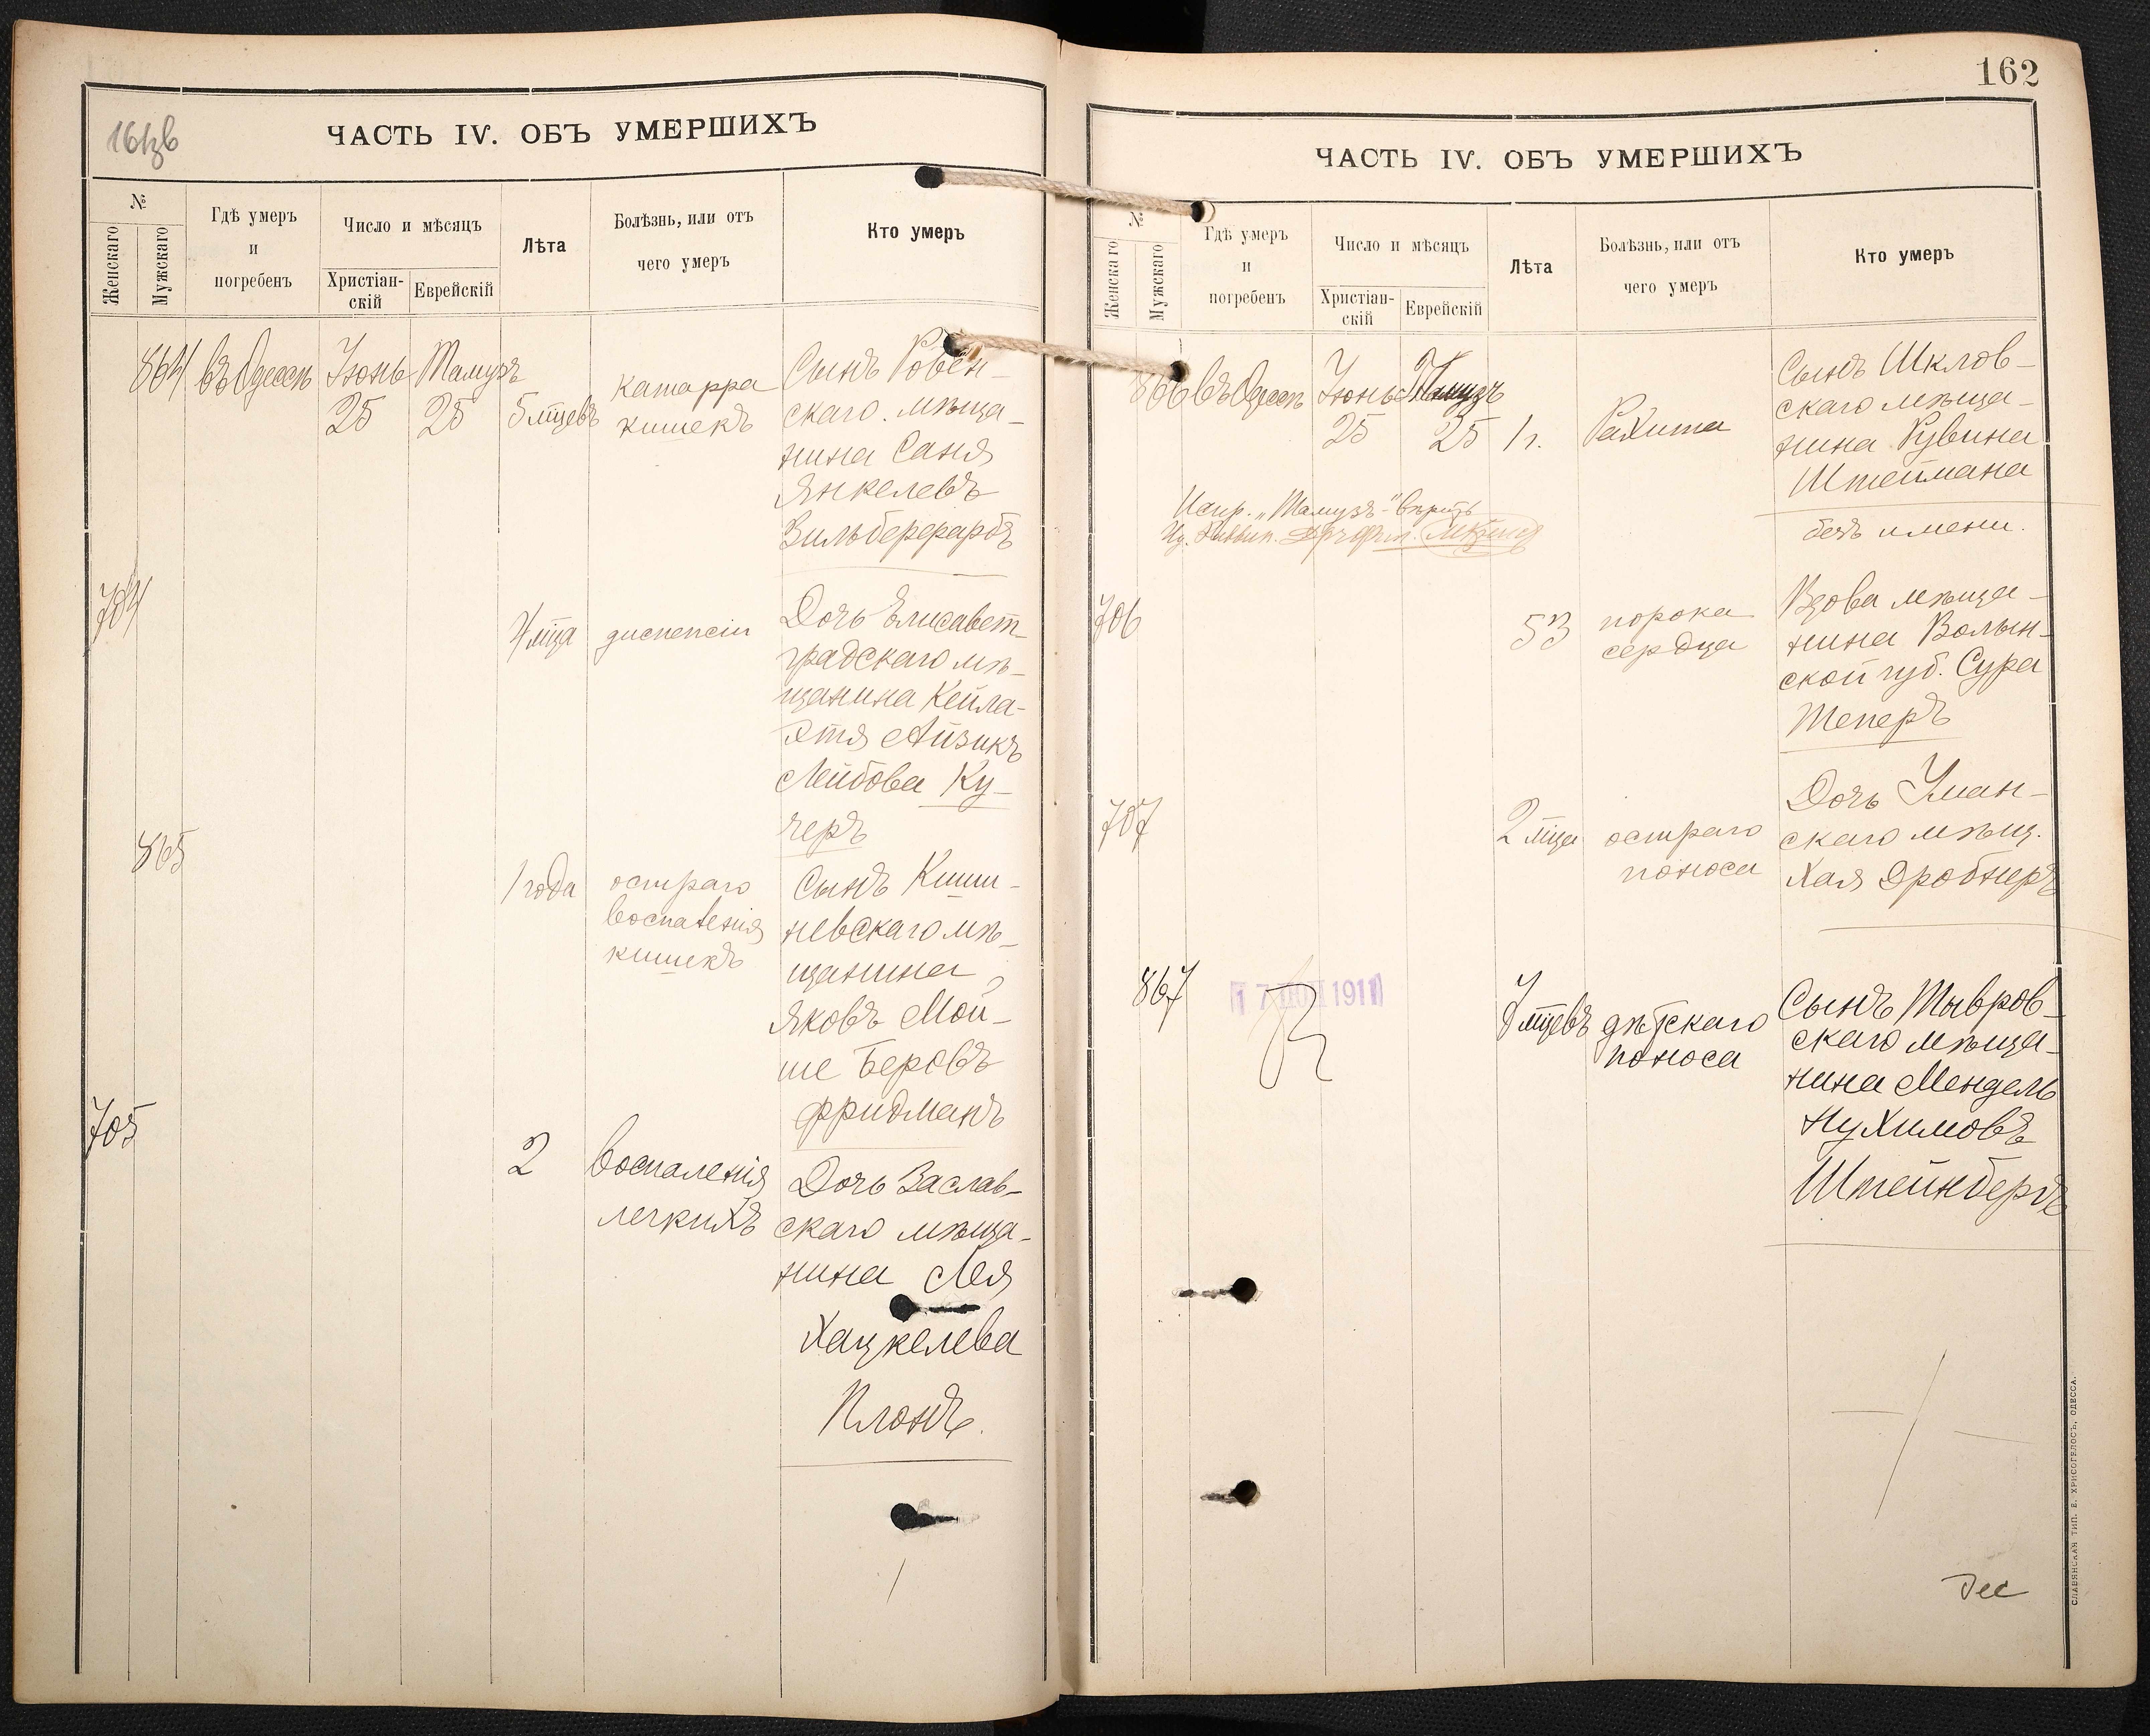 161зв
ЧАСТЬ IV. ОБЪ УМЕРШИХЪ
№
Женскаго
Мужскаго
Гдѣ умеръ
и
погребенъ
Число и мѣсяцъ
Христіан-
скій
Еврейскій
Лѣта
Болѣзнь, или отъ
чего умеръ
Кто умеръ
864
въ Одессѣ
Іюнь
25
Тамузъ
25
5 мцевъ
катарра
кишекъ
Сынъ Ровен-
скаго мѣща-
нина Саня
Янкелевъ
Зильберфарбъ
704
4 мца
диспепсіи
Дочь Елисавет-
градскаго мѣ-
щанина Кейла-
Этя Айзикъ
Лейбова Ку-
черъ
865
1 года
остраго
воспаленія
кишекъ
Сынъ Киши-
невскаго мѣ-
щанина
Яковъ Мой-
ше Беровъ
Фридманъ
705
2
воспаленія
легкихъ
Дочь Заслав-
скаго мѣща-
нина Лея
Хацкелева
Плонъ.
162
ЧАСТЬ IV. ОБЪ УМЕРШИХЪ
№
Женскаго
Мужскаго
Гдѣ умеръ
и
погребенъ
Число и мѣсяцъ
Христіан-
скій
Еврейскій
Лѣта
Болѣзнь, или отъ
чего умеръ
Кто умеръ
866
въ Одессѣ
Іюнь
25
Тамузъ
25
1 г.
Рахита
Сынъ Шклов-
скаго мѣща-
нина Рувина
Штеймана
безъ имени.
Испр. „Тамузъ" вѣрить
706
53
порока
сердца
Вдова мѣща-
нина Волын-
ской губ. Сура
Теперъ
707
2 мца
остраго
поноса
Дочь Уман-
скаго мѣщ.
Хая Дробнеръ
867
17 1911
мцевъ
дѣтскаго
поноса
Сынъ Тывров-
скаго мѣща-
нина Мендель
Нухимовъ
Штейнбергъ
СЛАВЯНСКАЯ ТИП. Е. ХРИСОГЕЛОСЪ, ОДЕССА.